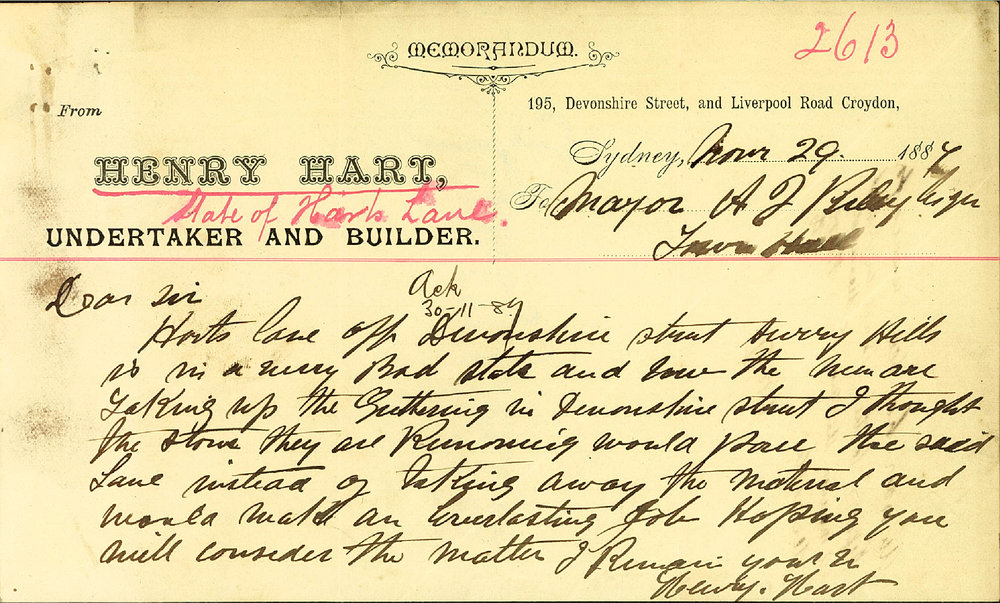 MEMORANDUM.
2613
From
195, Devonshire Street, and Liverpool Road Croydon,
HENRY HART,
Sydney, Novr 29. 1887
State of Harts Lane.
To Mayor A J Riley Esqr
UNDERTAKER AND BUILDER.
Town Hall
Dear Sir
Ack
30-11-87
Harts lane off Devonshire street Surry Hills
is in a very Bad state and now the men are
Taking up the Guttering in Devonshire street I thought
the stone they are Removing would pave the said
Lane instead of taking away the material and
would make an Everlasting Job Hoping you
will consider the matter I Remain your &c
Henry. Hart